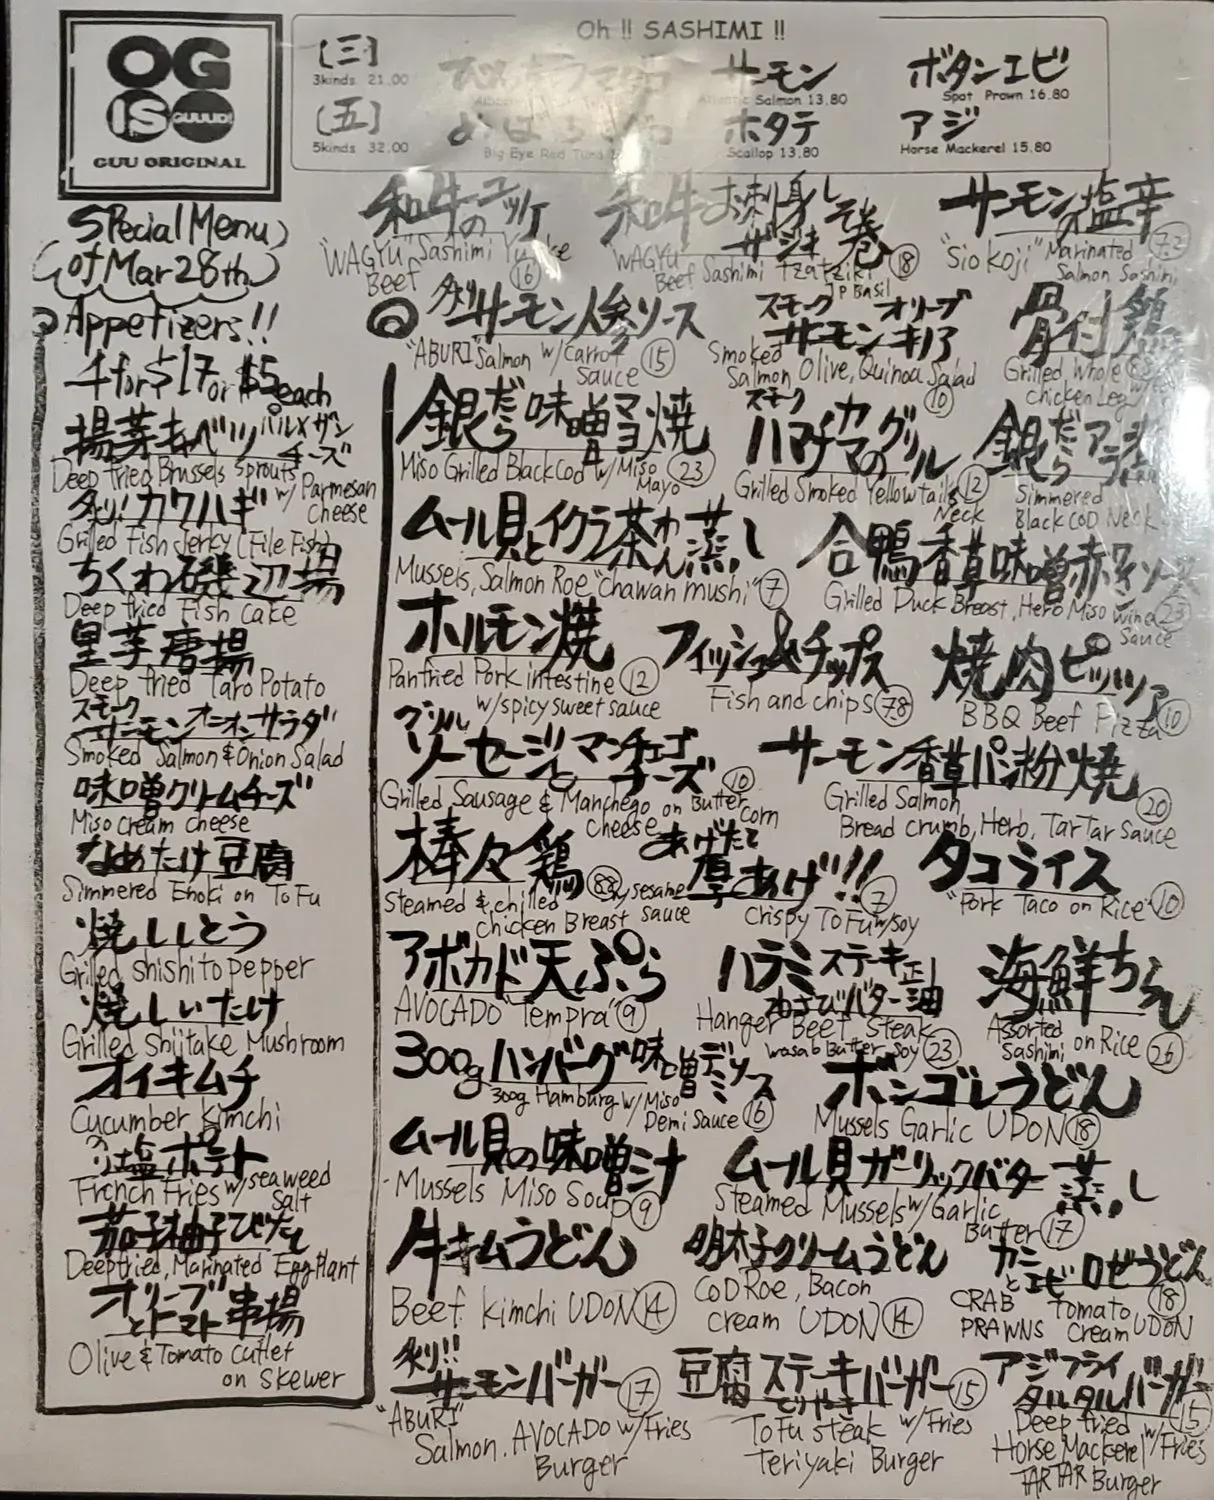 OG
IS GUUUD!
GUU ORIGINAL
Oh !! SASHIMI !!
[三]
3kinds 21.00
[五]
5kinds 32.00
サーモン
Salmon 13.80
ボタンエビ
Spot Prawn 16.80
ホタテ
Scallop 13.80
アジ
Horse Mackerel 15.80
Big Eye Red Tuna
Special Menu
of Mar 28th
Appetizers!!
4 for $17 or $5 each
揚芽キャベツ パルメザンチーズ
Deep fried Brussels sprouts w/ Parmesan cheese
炙り!カワハギ
Grilled Fish Jerky (File Fish)
ちくわ磯辺揚
Deep fried Fish cake
里芋唐揚
Deep fried Taro Potato
スモークサーモンオニオンサラダ
Smoked Salmon & Onion Salad
味噌クリームチーズ
Miso cream cheese
なめたけ豆腐
Simmered Enoki on ToFu
焼ししとう
Grilled shishito pepper
焼しいたけ
Grilled shiitake Mushroom
オイキムチ
Cucumber kimchi
のり塩ポテト
French Fries w/ seaweed salt
茄子柚子びたし
Deep fried, Marinated Egg Plant
オリーブとトマト串揚
Olive & Tomato cutlet
on skewer
和牛のユッケ
"WAGYU" Sashimi
Beef 16
和牛お刺身しそ巻 ザジキ
"WAGYU" Beef Sashimi Tzatziki JP Basil 18
サーモン塩辛
"Sio koji" Marinated Salmon Sashimi 7.2
炙りサーモン人参ソース
"ABURI" Salmon w/ Carrot Sauce 15
スモークサーモン オリーブ キノア
Smoked Salmon Olive, Quinoa Salad 10
骨付鶏
Grilled Whole chicken Leg
銀だら味噌マヨ焼
Miso Grilled Black Cod w/ Miso Mayo 23
スモークハマチカマのグリル
Grilled Smoked Yellowtails Neck 12
銀だらアラ
Simmered Black CoD Neck
ムール貝とイクラ茶わん蒸し
Mussels, Salmon Roe "chawan mushi" 7
合鴨香草味噌赤ワインソース
Grilled Duck Breast, Hero Miso Wine Sauce 23
ホルモン焼
Panfried Pork intestine 12
w/ spicy sweet sauce
フィッシュ&チップス
Fish and chips 7.8
焼肉ピッツァ
BBQ Beef Pizza 10
グリルソーセージとマンチェゴチーズ
Grilled Sausage & Manchego cheese on Butter corn 10
サーモン香草パン粉焼
Grilled Salmon 20
Bread crumb, Herb, TarTar sauce
棒々鶏
Steamed & chilled chicken Breast w/ sesame sauce 8.8
あげたて厚あげ!!
Crispy ToFu w/ soy 7
タコライス
"Pork Taco on Rice" 10
アボカド天ぷら
AVOCADO "Tempra" 9
ハラミステーキ わさびバター正油
Hanger Beef Steak
wasabi Butter soy 23
海鮮ちらし
Assorted Sashimi on Rice 26
300gハンバーグ味噌デミソース
300g Hamburg w/ Miso Demi Sauce 16
ボンゴレうどん
Mussels Garlic UDON 18
ムール貝の味噌汁
Mussels Miso Soup 9
ムール貝ガーリックバター蒸し
Steamed Mussels w/ Garlic Butter 17
牛キムうどん
Beef kimchi UDON 14
明太子クリームうどん
CoD Roe, Bacon
cream UDON 14
カニとエビロゼうどん
CRAB PRAWNS Tomato cream UDON 18
炙り!!サーモンバーガー
"ABURI" 17
Salmon. AVOCADO w/ Fries
Burger
豆腐ステーキてりやきバーガー
ToFu steak w/ Fries 15
Teriyaki Burger
アジフライタルタルバーガー
Deep fried Horse Mackerel w/ Fries 15
TARTAR Burger